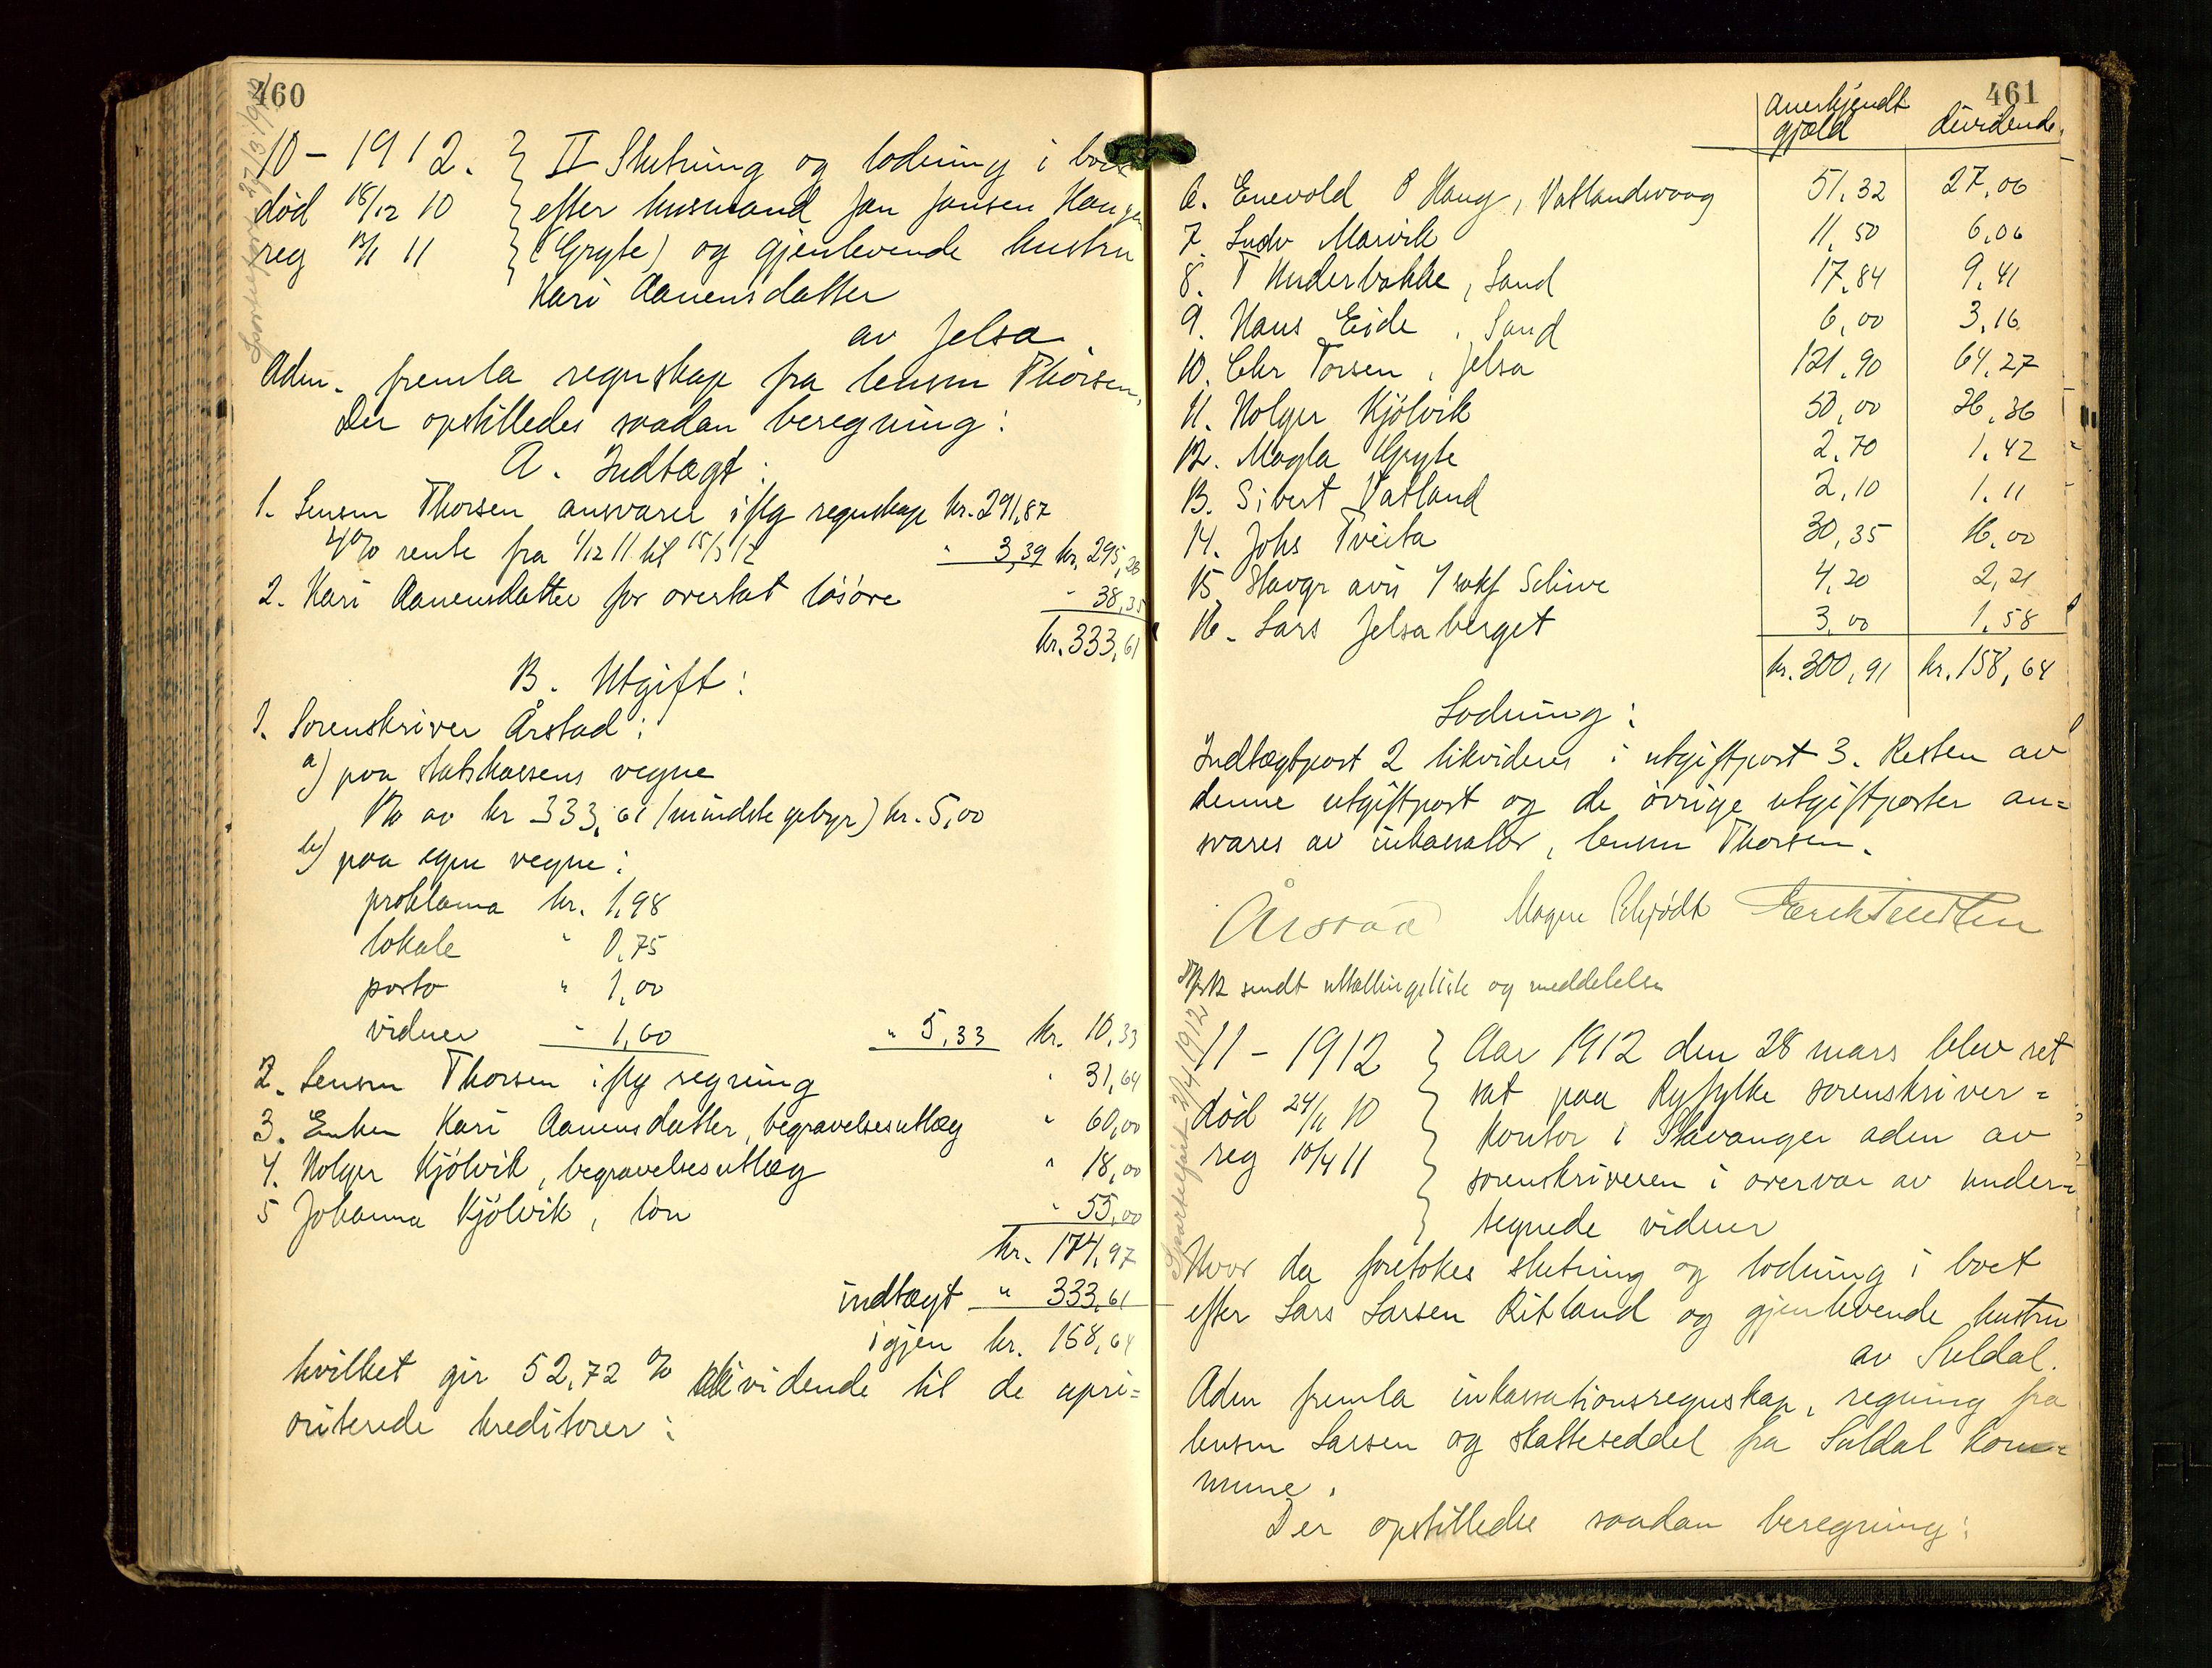 460
Sportelført 27/3 1912
10 - 1912. } II Slutning og lodning i boet
død 18/12 10 } efter husmand Jan Jansen Haugen
reg 13/1 11 } (Gryte) og gjenlevende hustru
Kari Aanensdatter
av Jelsa.
Adm. fremla regnskap fra lensm Thorsen.
Der opstilledes saadan beregning:
A. Indtægt:
1. Lensm Thorsen ansvarer iflg regnskap kr. 291,87
4% rente fra 1/12 11 til 15/3 12 " 3,39 kr. 295,26
2. Kari Aanensdatter for overtat løsøre " 38,35
kr. 333,61
B. Utgift:
1. Sorenskriver Årstad:
a) paa statskassens vegne
1% av kr 333,61 (mindste gebyr) kr. 5,00
b) paa egne vegne:
proklama kr. 1,98
lokale " 0,75
porto " 1,00
vidner " 1,60 " 5,33 kr. 10,33
2. Lensm Thorsen iflg regning " 31,64
3. Enken Kari Aanensdatter, begravelsesutlæg " 60,00
4. Holger Kjölvik, begravelsesutlæg " 18,00
5 Johanna Kjölvik, løn " 55,00
kr. 174,97
indtægt " 333,61
igjen kr. 158,64
hvilket gir 52,72 % dividende til de upri=
oriterede kreditorer:
461
anerkjendt gjæld dividende.
6. Enevold O Haug, Vatlandsvaag 51,32 27,06
7. Ludv Marvik 11,50 6,06
8. T Underbakke, Sand 17,84 9,41
9. Hans Eide, Sand 6,00 3,16
10. Chr Torsen, Jelsa 121,90 64,27
11. Holger Kjölvik 50,00 26,36
12. Magla Gryte 2,70 1,42
13. Sivert Vatland 2,10 1,11
14. Johs Tveita 30,35 16,00
15. Stavgr avis v/ sakf Schive 4,20 2,21
16. Lars Jelsaberget 3,00 1,58
kr. 300,91 kr. 158,64
Lodning:
Indtægtpost 2 likvideres i utgiftpost 3. Resten av
denne utgiftpost og de øvrige utgiftposter an=
svares av inkassator, lensm Thorsen.
Årstad Magne Schjødt
sendt utlodningsliste og meddelelse
Sportelført 2/4 1912
11 - 1912 } Aar 1912 den 28 mars blev ret
død 24/11 10 } sat paa Ryfylke sorenskriver=
reg 10/4 11 } kontor i Stavanger adm av
sorenskriveren i overvær av under=
tegnede vidner
Hvor da foretokes slutning og lodning i boet
efter Lars Larsen Ritland og gjenlevende hustru
av Suldal.
Adm fremla inkassationsregnskap, regning fra
lensm Larsen og skatteseddel fra Suldal kom=
mune.
Der opstilledes saadan beregning: